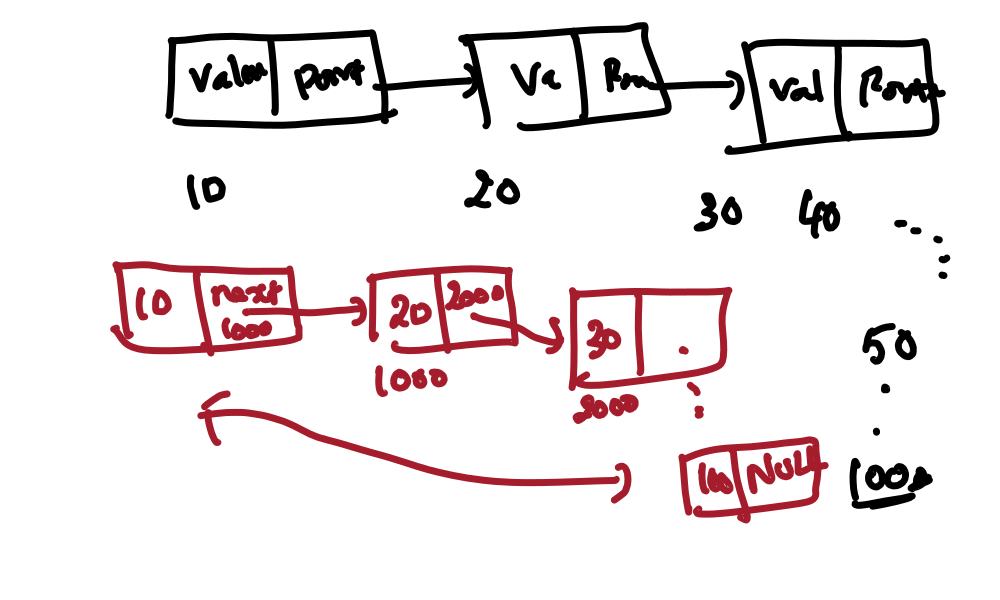 Value Point Va Poin Val Point
10 20 30 40
10 next 1000 20 2000 30
1000 2000
50
100 NULL 100